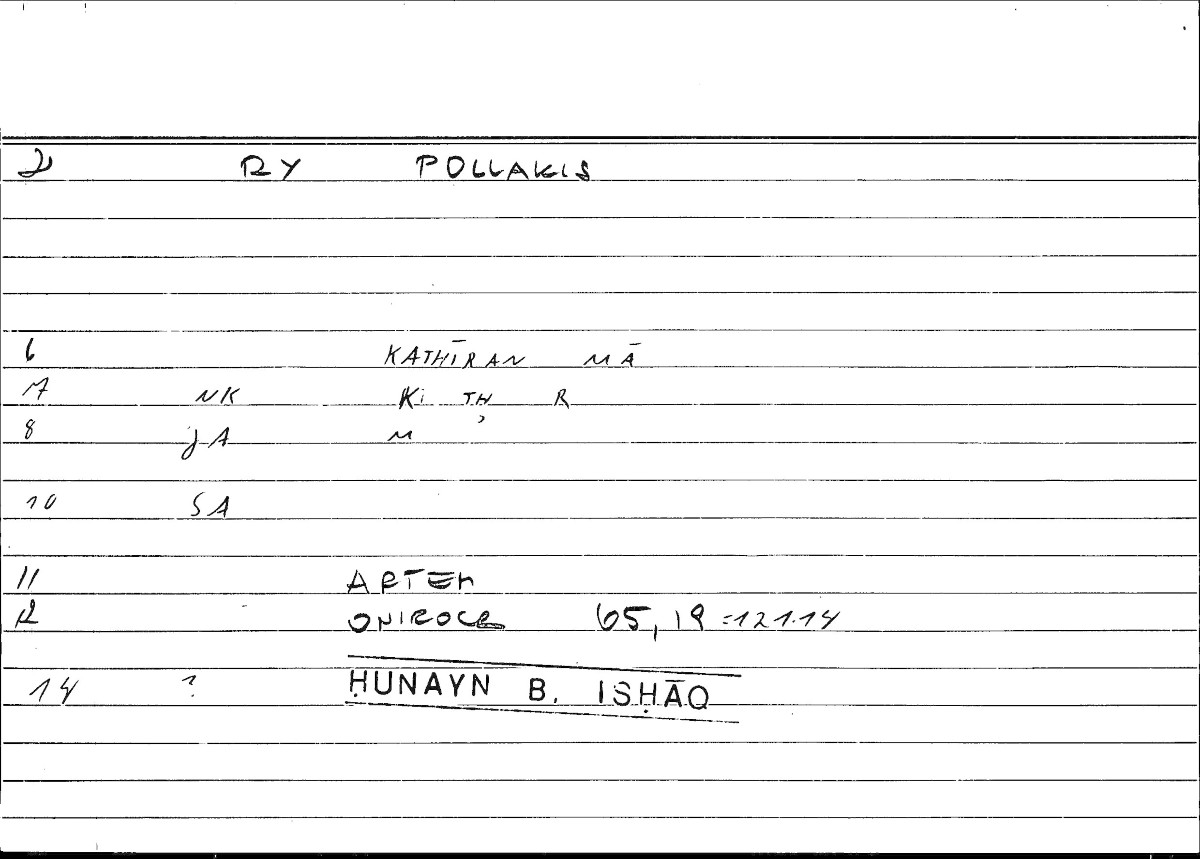 2 RY POLLAKIS
6 KATHĪRAN MĀ
7 NK Ki TH R
8 JA M
10 SA
11 ARTEM
12 ONIROCR 65,19 =121.14
14 ? ḤUNAYN B. ISḤĀQ